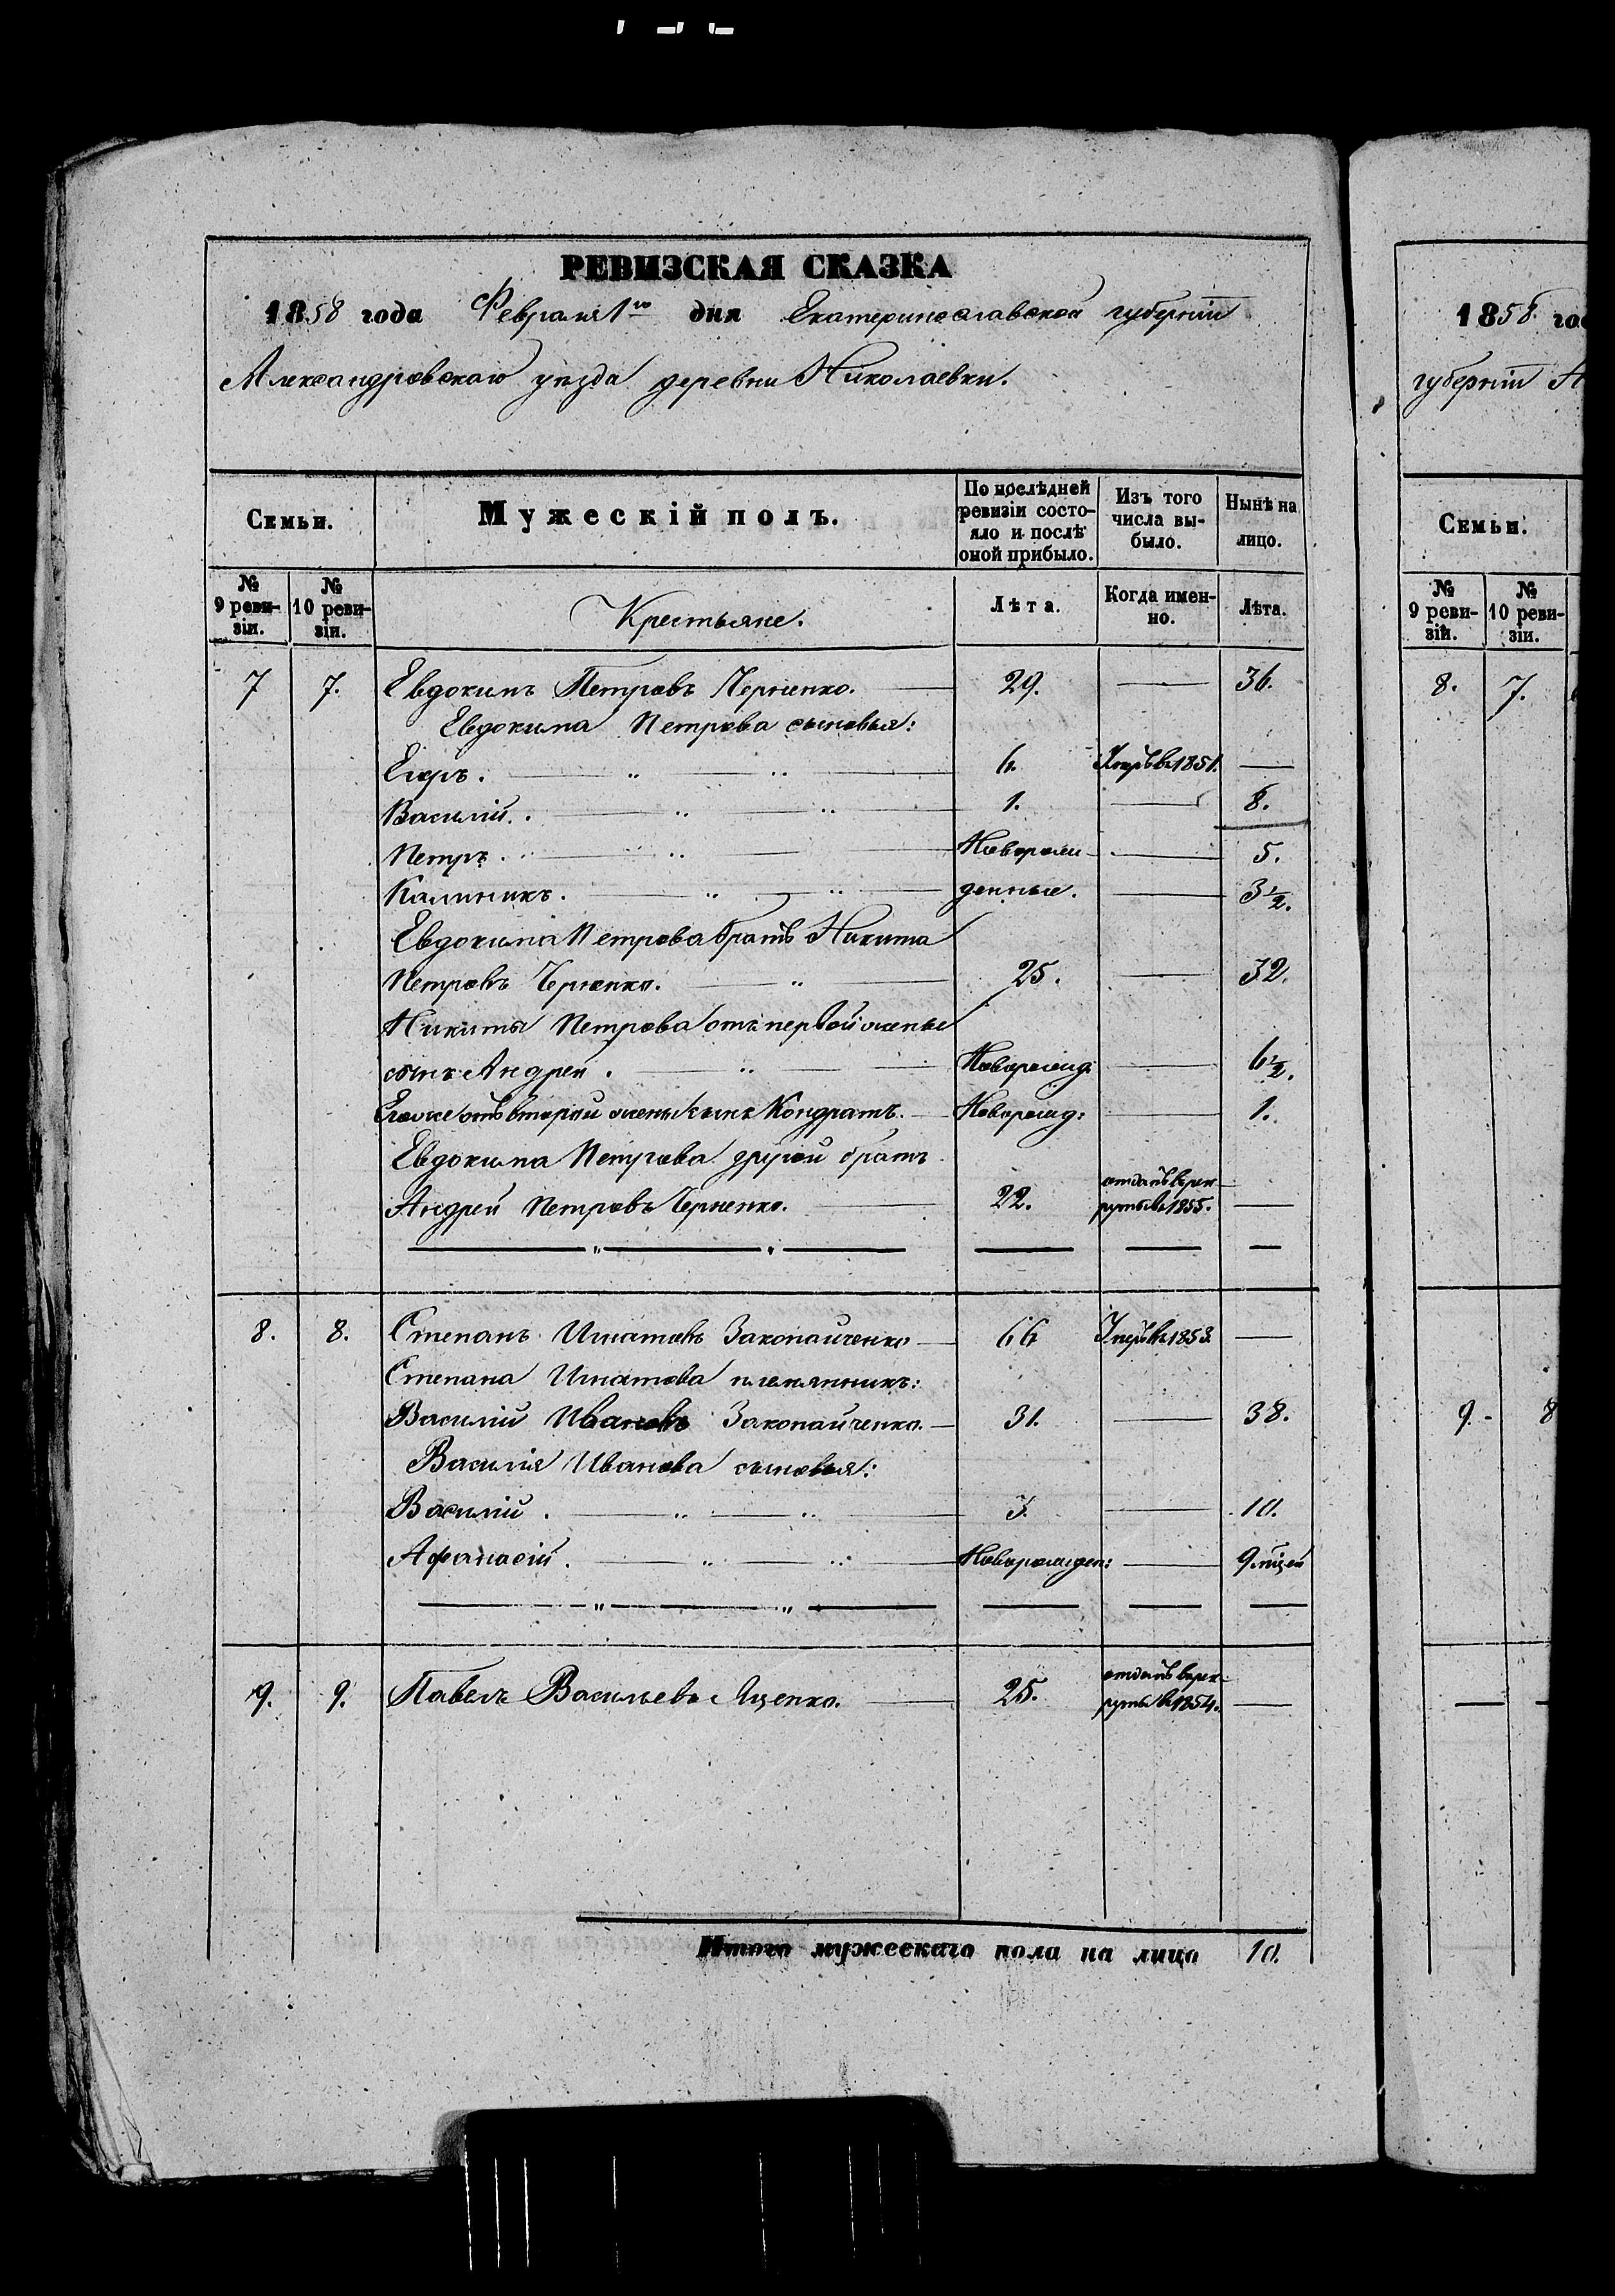 РЕВИЗСКАЯ СКАЗКА
1858 года Февраля 1го дня Екатеринославской губерніи
Александровскаго уѣзда деревни Николаевки.
Семьи.
Мужескій полъ.
По послѣдней ревизіи состояло и послѣ оной прибыло.
Изъ того числа выбыло.
Нынѣ на лицо.
№ 9 ревизіи.
№ 10 ревизіи.
Крестьяне.
Лѣта.
Когда именно.
Лѣта.
7 7. Евдокимъ Петровъ Черненко. 29. — 36.
Евдокима Петрова сыновья:
Егоръ. 6. Умеръ въ 1851. —
Василій. 1. — 8.
Петръ. Неворож- — 5.
Калиникъ. денные. — 3½.
Евдокима Петрова братъ Никита
Петровъ Черненко. 25. — 32.
Никиты Петрова отъ первой жены
сынъ Андрей. Неворожд: — 6½.
Его же отъ второй жены сынъ Кондратъ. Неворожд: — 1.
Евдокима Петрова другой братъ
Андрей Петровъ Черненко. 22. отданъ въ рекруты въ 1855. —
8. 8. Степанъ Игнатовъ Закопайченко 66 Умеръ въ 1853. —
Степана Игнатова племянникъ:
Василій Ивановъ Закопайченко. 31. — 38.
Василія Иванова сыновья:
Василій. 3. — 10.
Афанасій. Неворожден: — 9 мѣсей
9. 9. Павелъ Васильевъ Яценко. 25. отданъ въ рекруты въ 1854. —
Итого мужескаго пола на лицо 10.
1858 го
губерніи А
Семьи.
№ 9 ревизіи.
№ 10 ревизіи.
8. 7.
9. - 8